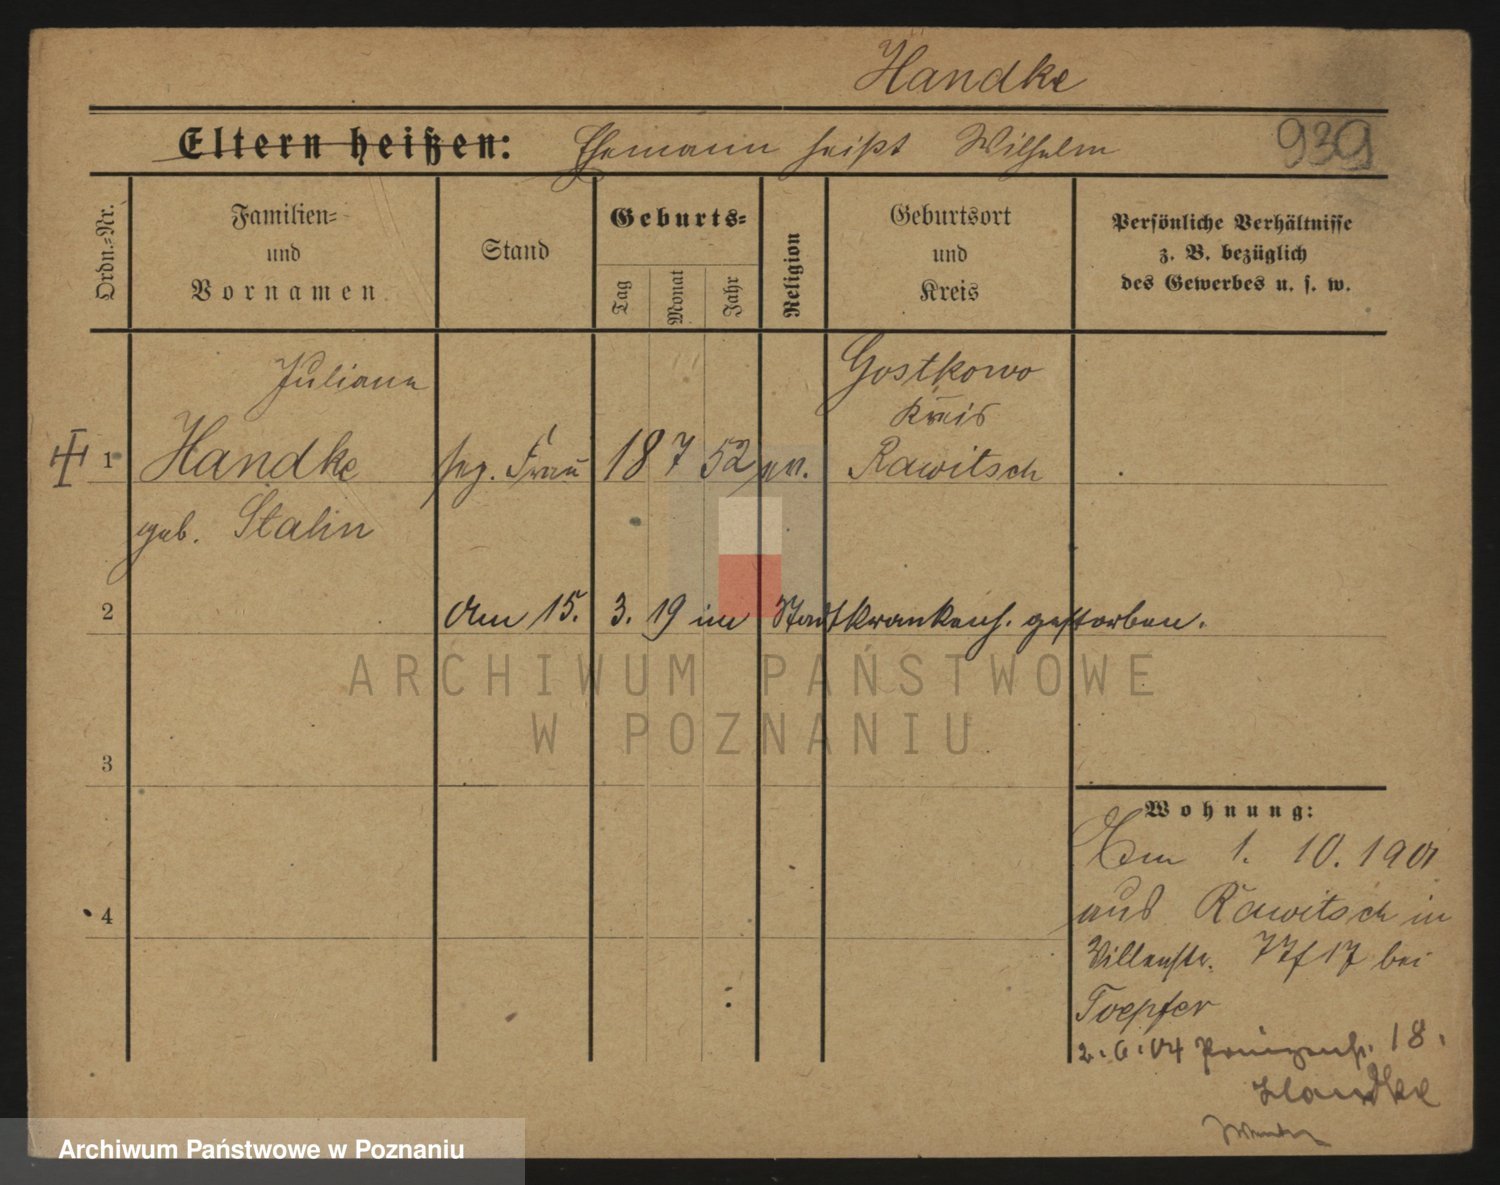 Handke
Eltern heißen: Ehemann heißt Wilhelm 939
Ordn.=Nr.
Familien=
und
Vornamen
Stand
Geburts=
Tag
Monat
Jahr
Religion
Geburtsort
und
Kreis
Persönliche Verhältnisse
z. B. bezüglich
des Gewerbes u. s. w.
Juliana Gostkowo
Kreis
1 Handke Frau 18 7 52 ev. Rawitsch
geb. Stalin
2 Am 15. 3. 19 im Stadtkrankenh. gestorben.
ARCHIWUM PAŃSTWOWE
W POZNANIU
3
Wohnung:
Am 1. 10. 1901
4 aus Rawitsch in
Villenstr. bei
Toepfer
2.6.04 Prinzenstr. 18.
Handke
Archiwum Państwowe w Poznaniu